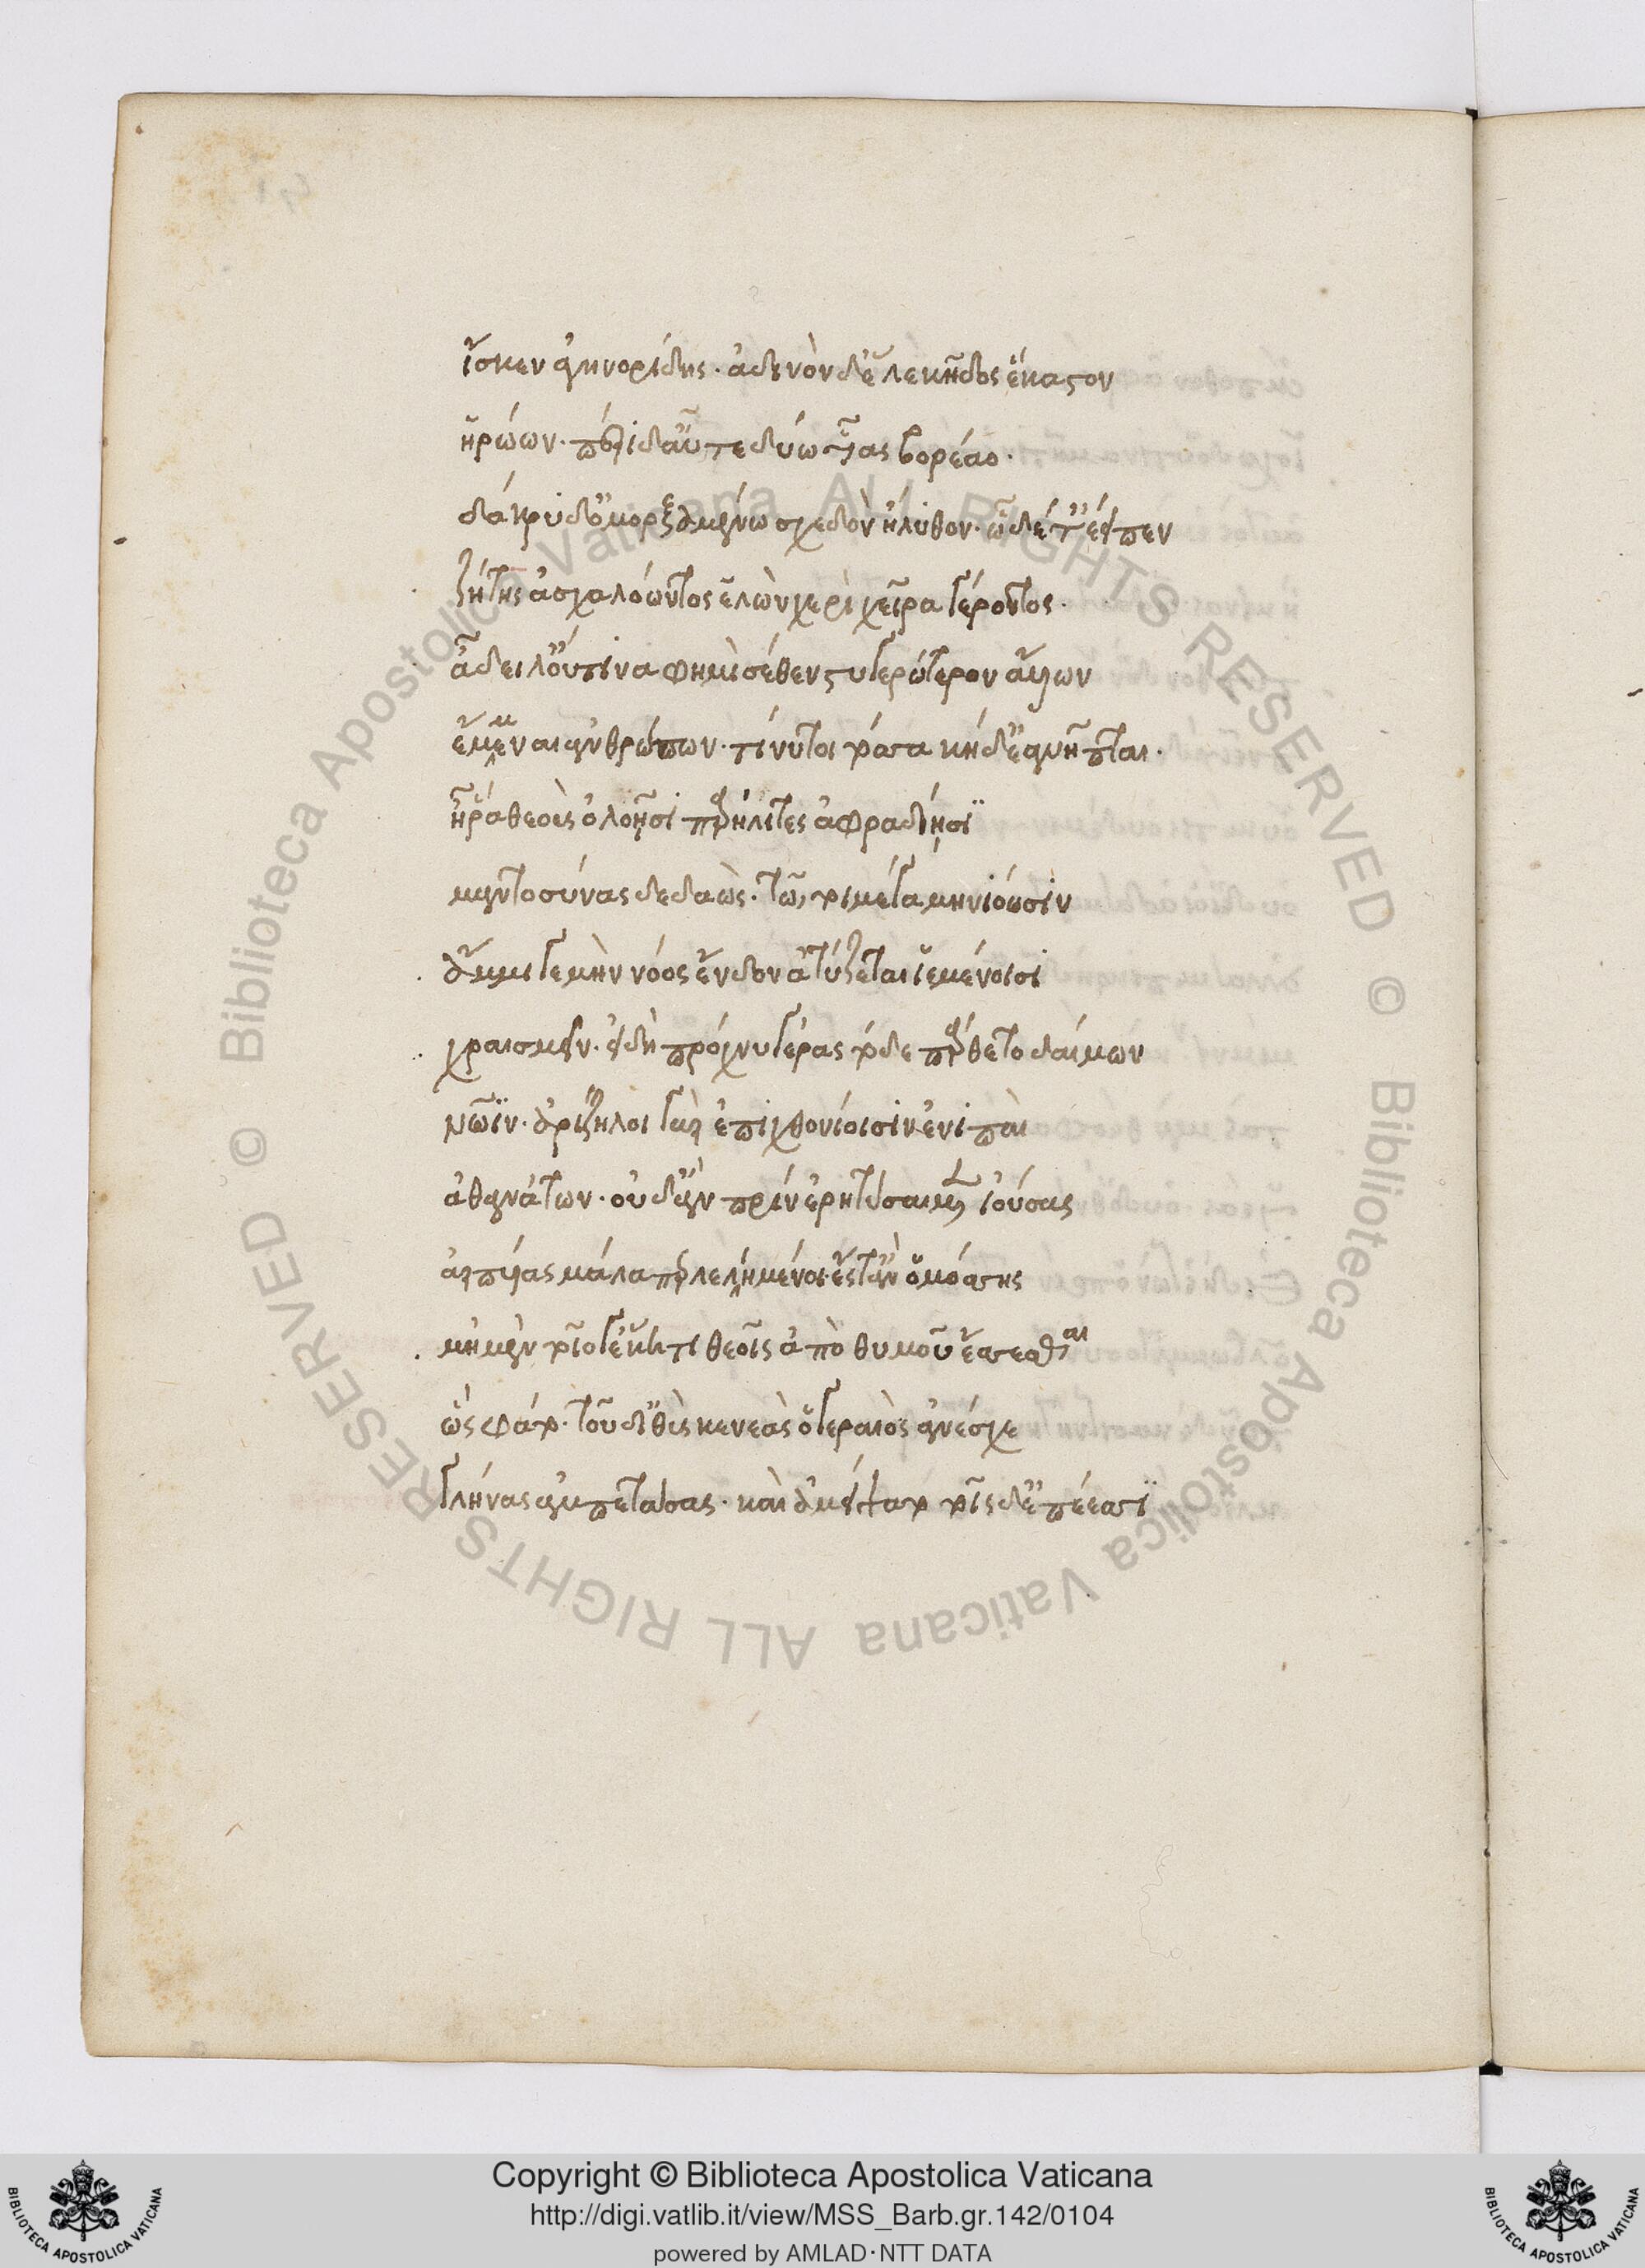 ἴσκεν ἀγηνορίδης. ἀδινὸν δ' ἕλε κῆδος ἕκαστον
ἡρώων. πέρι δ' αὖτε δύω υἷας βορέαο.
δάκρυ δ' ὀμορξαμένω σχεδὸν ἤλυθον. ὧδέ τ' ἔειπεν
ζήτης ἀσχαλόωντος ἑλὼν χερὶ χεῖρα γέροντος.
ἆ δείλ' οὔτινα φημὶ σέθεν στυγερώτερον ἄλλων
ἔμμεναι ἀνθρώπων. τί νύ τοι τόσα κήδε' ἀνῆπται.
ἦ ῥα θεοὺς ὀλοῇσι παρήλιτες ἀφραδίῃσι
μαντοσύνας δεδαώς. τῶ τοι μέγα μηνιόωσιν
ἄμμι γε μὴν νόος ἔνδον ἀτύζεται ἱεμένοισι
χραισμεῖν. εἰ δὴ πρόχνυ γέρας τόδε πάρθετο δαίμων
νῶϊν. ἀρίζηλοι γὰρ ἐπιχθονίοισιν ἐνιπαὶ
ἀθανάτων. οὐδ' ἂν πρὶν ἐρητύσαιμεν ἰούσας
ἁρπυίας μάλα περ λελιημένοι ἔστ' ἂν ὀμόσσῃς
μὴ μὲν τοῖο γ' ἕκητι θεοῖς ἀπὸ θυμοῦ ἔσεσθαι
ὣς φάτο. τοῦ δ' ἰθὺς κενεὰς ὁ γεραιὸς ἀνέσχε
γλήνας ἀμπετάσας. καὶ ἀμείψατο τοῖς δ' ἐπέεσσι
Copyright © Biblioteca Apostolica Vaticana
http://digi.vatlib.it/view/MSS_Barb.gr.142/0104
powered by AMLAD·NTT DATA
BIBLIOTECA APOSTOLICA VATICANA
BIBLIOTECA APOSTOLICA VATICANA
© Biblioteca Apostolica Vaticana ALL RIGHTS RESERVED © Biblioteca Apostolica Vaticana ALL RIGHTS RESERVED